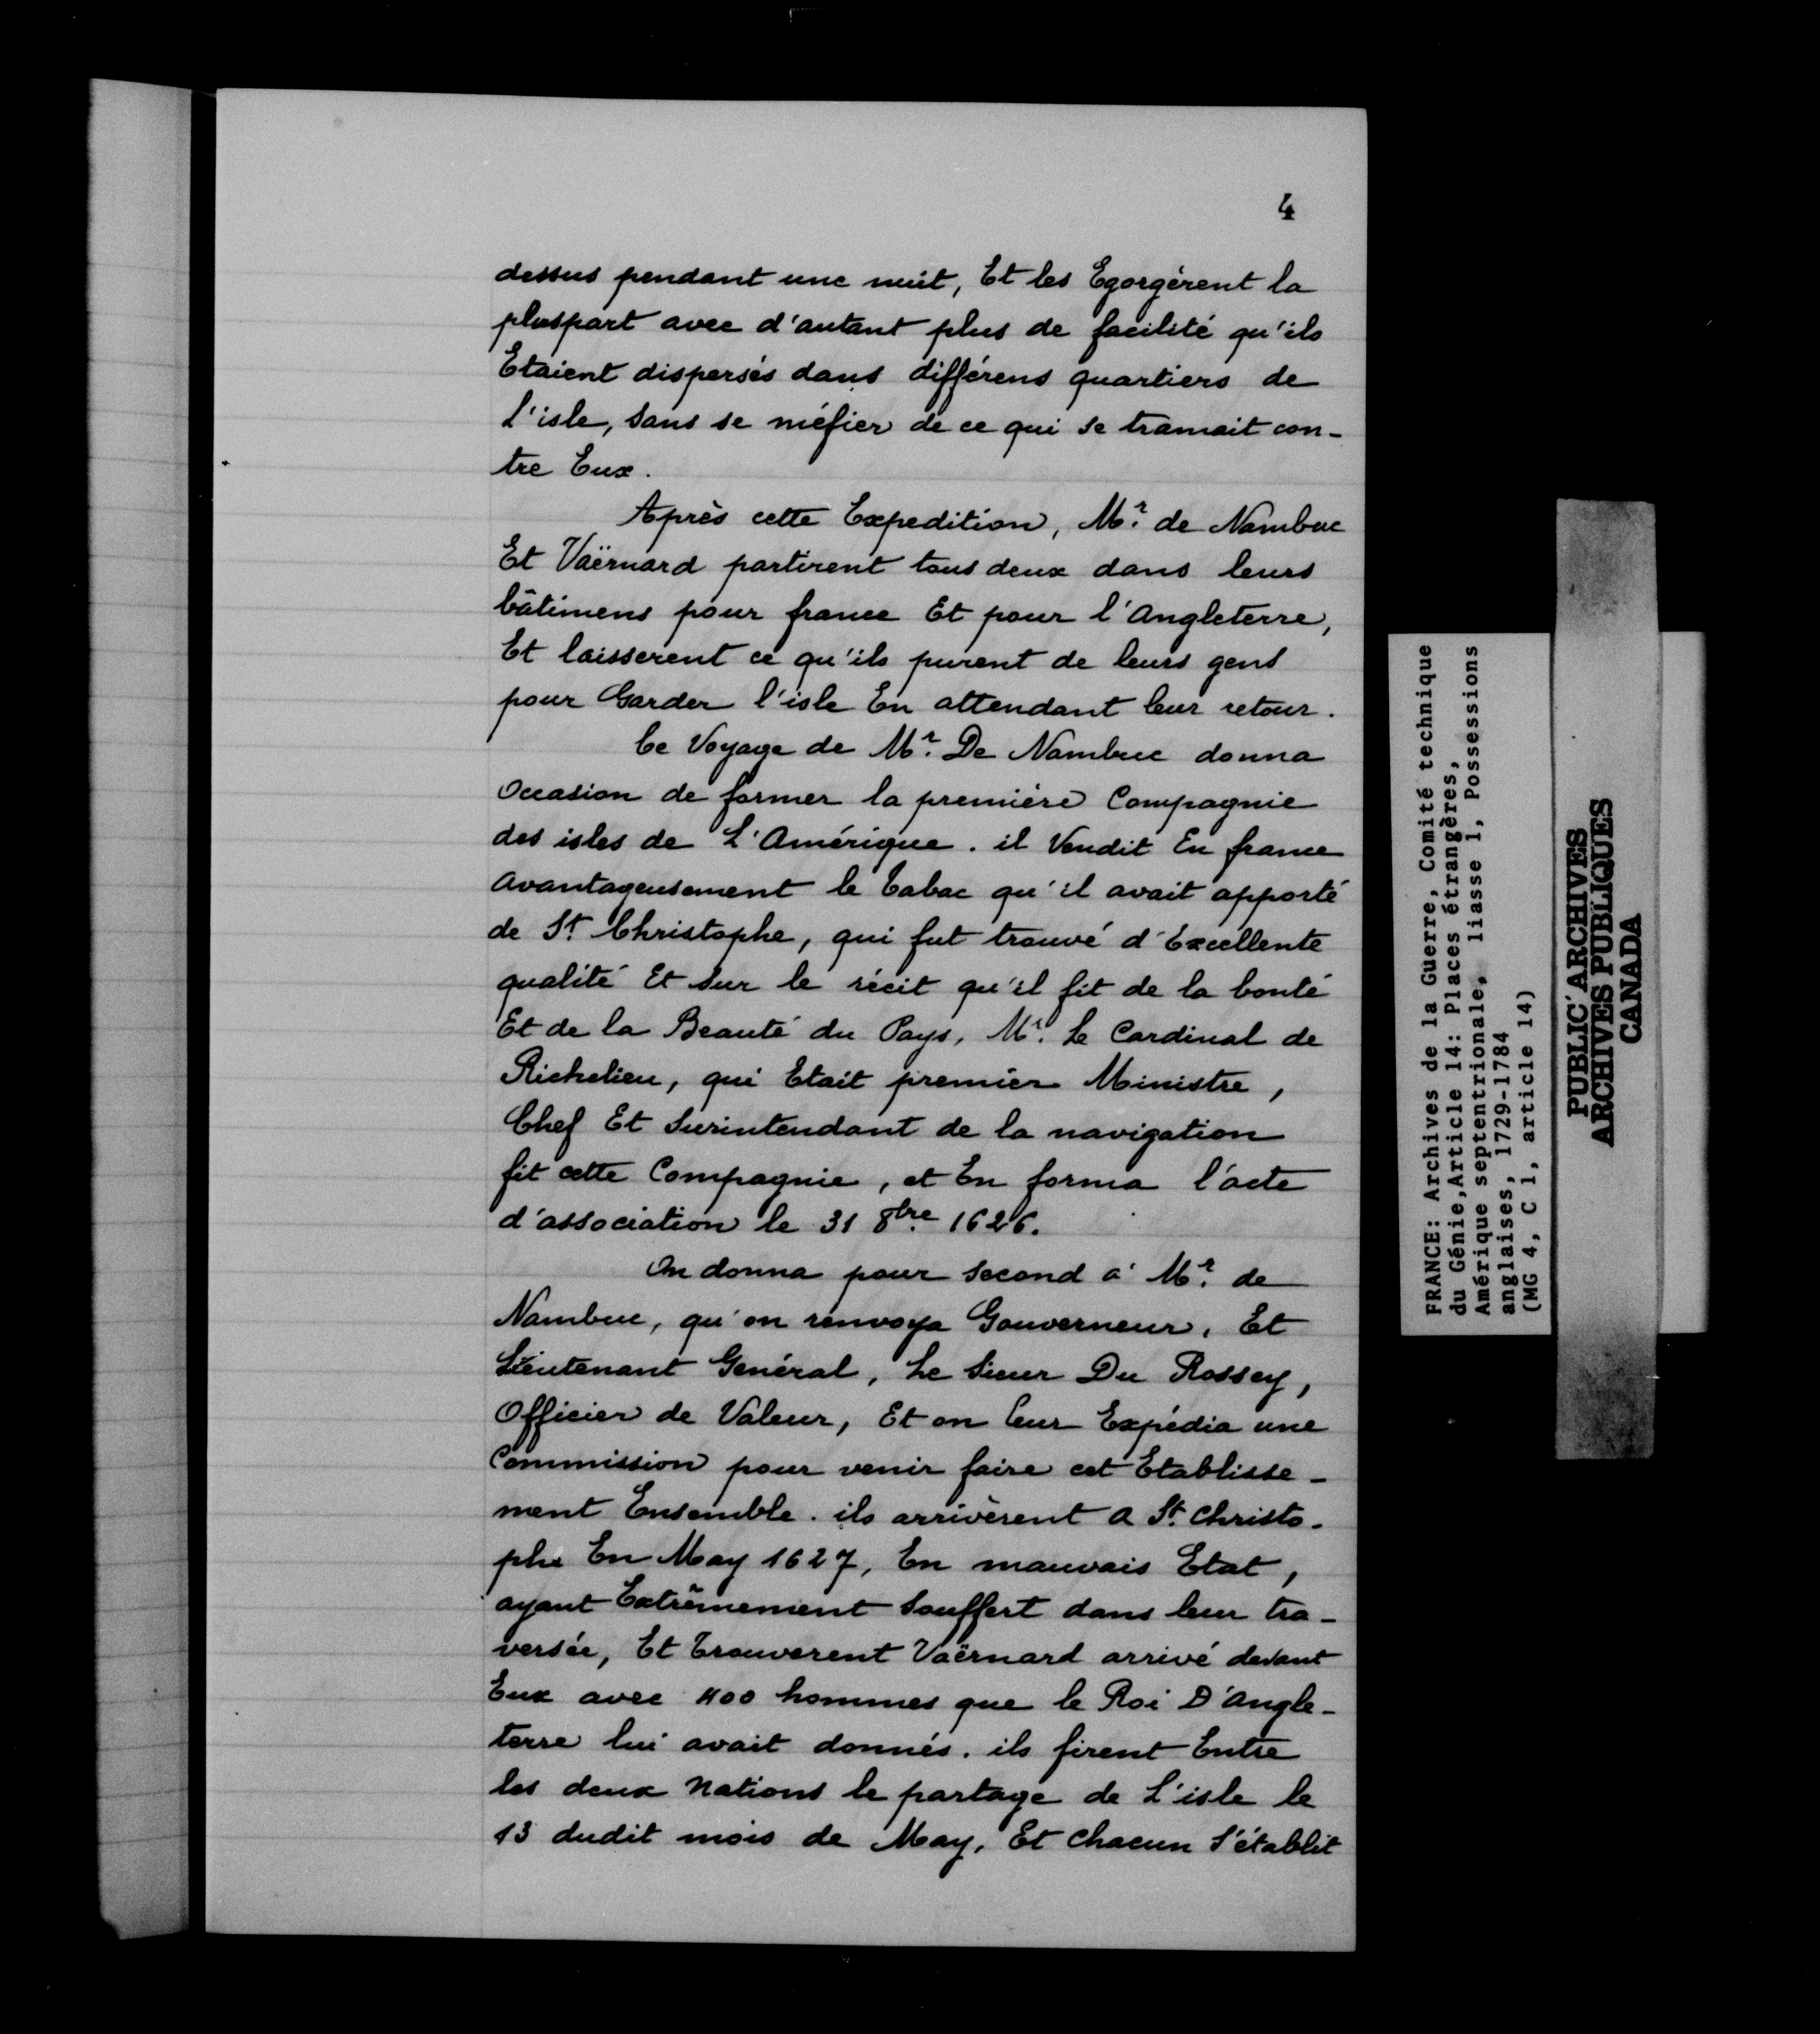 4
dessus pendant une nuit, Et les Egorgérent la
pluspart avec d'autant plus de facilité qu'ils
Etaient dispersés dans différens quartiers de
l'isle, sans se méfier de ce qui se tramait con-
tre Eux.
Après cette Expedition, Mr. de Nambuc
Et Vaërnard partirent tous deux dans leurs
bâtimens pour france Et pour l'Angleterre,
Et laisserent ce qu'ils purent de leurs gens
pour Garder l'isle En attendant leur retour.
Ce Voyage de Mr. De Nambuc donna
Occasion de former la première Compagnie
des isles de L'Amérique. il Vendit En france
avantageusement le tabac qu'il avait apporté
de St. Christophe, qui fut trouvé d'Excellente
qualité Et sur le récit qu'il fit de la bonté
Et de la Beauté du Pays, Mr. Le Cardinal de
Richelieu, qui Etait premier Ministre,
Chef Et Surintendant de la navigation
fit cette Compagnie, et En forma l'acte
d'association le 31 8bre 1626.
On donna pour second á Mr. de
Nambuc, qu'on renvoya Gouverneur, Et
Lieutenant Général, Le Sieur Du Rossey,
Officier de Valeur, Et on leur Expédia une
Commission pour venir faire cet Etablisse-
ment Ensemble. ils arrivèrent a St. Christo-
phe En May 1627, En mauvais Etat,
ayant Extrêmement Souffert dans leur tra-
versée, Et trouverent Vaërnard arrivé devant
Eux avec 400 hommes que le Roi D'Angle-
terre lui avait donnés. ils firent Entre
les deux Nations le partage de L'isle le
13 dudit mois de May, Et chacun S'établit
FRANCE: Archives de la Guerre, Comité technique
du Génie,Article 14: Places étrangères,
Amérique septentrionale, liasse 1, Possessions
anglaises, 1729-1784
(MG 4, C 1, article 14)
PUBLIC ARCHIVES
ARCHIVES PUBLIQUES
CANADA